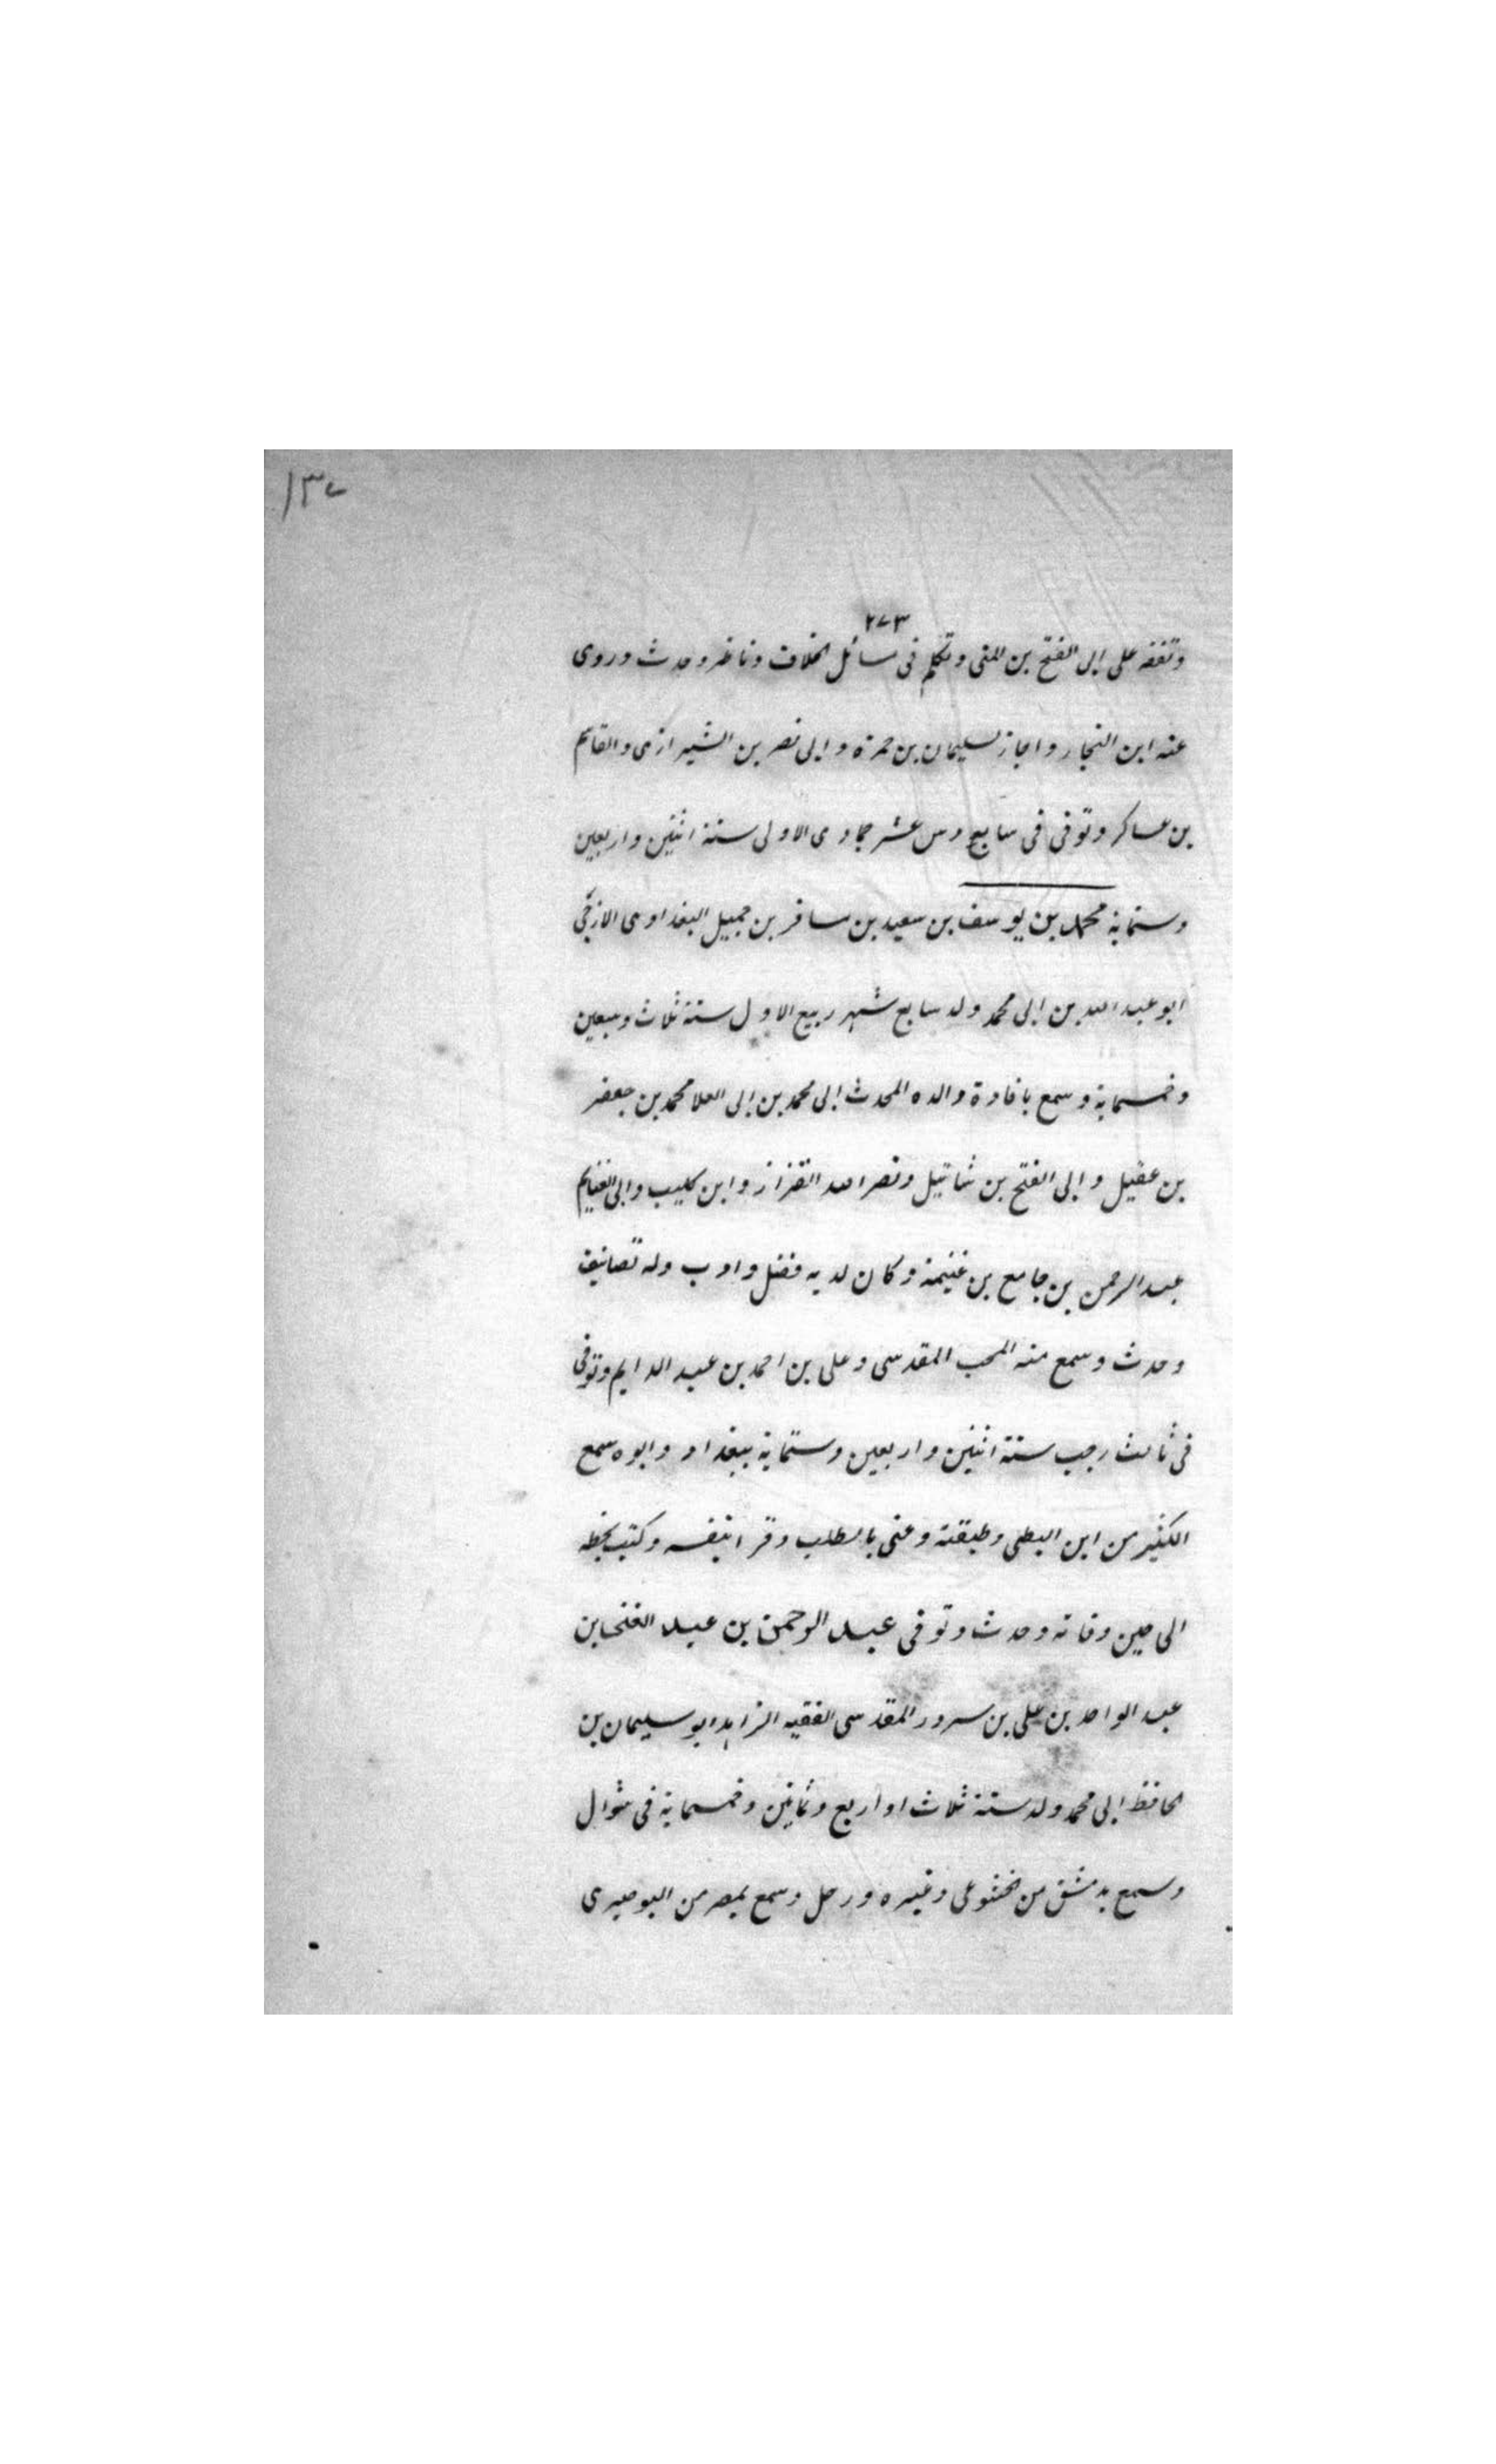 ١٣٧
٢٧٣
وتفقه على ابى الفتح بن المنى وتكلم فى مسائل الخلاف وناظر وحدث وروى
عنه ابن النجار واجاز لسليمان بن حمزة وابى نصر بن الشيرازى والقاسم
بن عساكر وتوفى فى سابع عشر جمادى الاولى سنة اثنين واربعين
وستماية محمد بن يوسف بن سعيد بن مسافر بن جميل البغدادى الازجى
ابو عبد الله بن ابى محمد ولد سابع شهر ربيع الاول سنة ثلاث وسبعين
وخمسماية وسمع بافادة والده المحدث ابى محمد بن ابى العلا محمد بن جعفر
بن عقيل وابى الفتح بن شاتيل ونصر الله القزاز وابن كليب وابى الغنايم
عبد الرحمن بن جامع بن غنيمة وكان لديه فضل وادب وله تصانيف
وحدث وسمع منه المحب المقدسى وعلى بن احمد بن عبد الدايم وتوفى
فى ثالث رجب سنة اثنين واربعين وستماية ببغداد وابوه سمع
الكثير من ابن البطى وطبقته وعنى بالطلب وقرا بنفسه وكتب بخطه
الى حين وفاته وحدث وتوفى عبد الرحمن بن عبد الغنى بن
عبد الواحد بن على بن سرور المقدسى الفقيه الزاهد ابو سليمان بن
الحافظ ابى محمد ولد سنة ثلاث او اربع وثمانين وخمسماية فى شوال
وسمع بدمشق من الخشوعى وغيره ورحل وسمع بمصر من البوصيرى